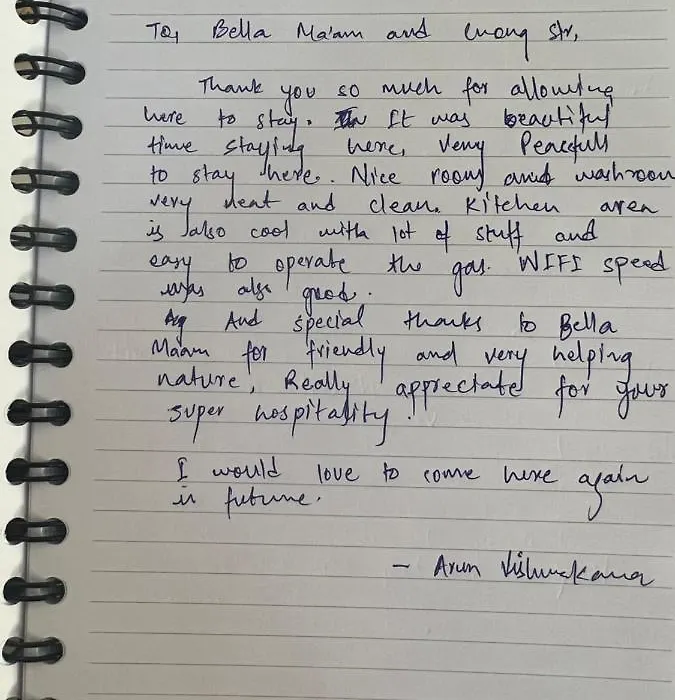 To, Bella Ma'am and Cuong Sir,
Thank you so much for allowing
here to stay. It was beautiful
time staying here, very Peacefull
to stay here. Nice room and washroom
very neat and clean. Kitchen area
is also cool with lot of stuff and
easy to operate the gas. WIFI speed
was also good.
And special thanks to Bella
Ma'am for friendly and very helping
nature, Really appreciate for your
super hospitality.
I would love to come here again
in future.
- Arun Vishwakarma